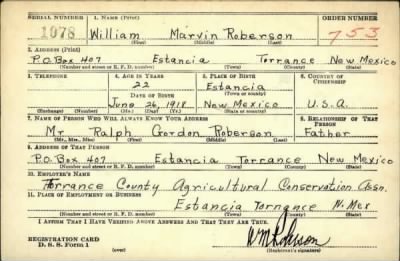 SERIAL NUMBER 1. NAME (Print) ORDER NUMBER
1078 William Marvin Roberson 753
(First) (Middle) (Last)
2. ADDRESS (Print)
P.O. Box 407 Estancia Torrance New Mexico
(Number and street or R. F. D. number) (Town) (County) (State)
3. TELEPHONE 4. AGE IN YEARS 5. PLACE OF BIRTH 6. COUNTRY OF CITIZENSHIP
22 Estancia
DATE OF BIRTH (Town or county)
June 26, 1918 New Mexico U.S.A.
(Exchange) (Number) (Mo.) (Day) (Yr.) (State or country)
7. NAME OF PERSON WHO WILL ALWAYS KNOW YOUR ADDRESS 8. RELATIONSHIP OF THAT PERSON
Mr. Ralph Gordon Roberson Father
(Mr., Mrs., Miss) (First) (Middle) (Last)
9. ADDRESS OF THAT PERSON
P.O. Box 407 Estancia Torrance New Mexico
(Number and street or R. F. D. number) (Town) (County) (State)
10. EMPLOYER'S NAME
Torrance County Agricultural Conservation Assn.
11. PLACE OF EMPLOYMENT OR BUSINESS
Estancia Torrance N. Mex
(Number and street or R. F. D. number) (Town) (County) (State)
I AFFIRM THAT I HAVE VERIFIED ABOVE ANSWERS AND THAT THEY ARE TRUE.
REGISTRATION CARD
D. S. S. Form 1 (Registrant's signature)